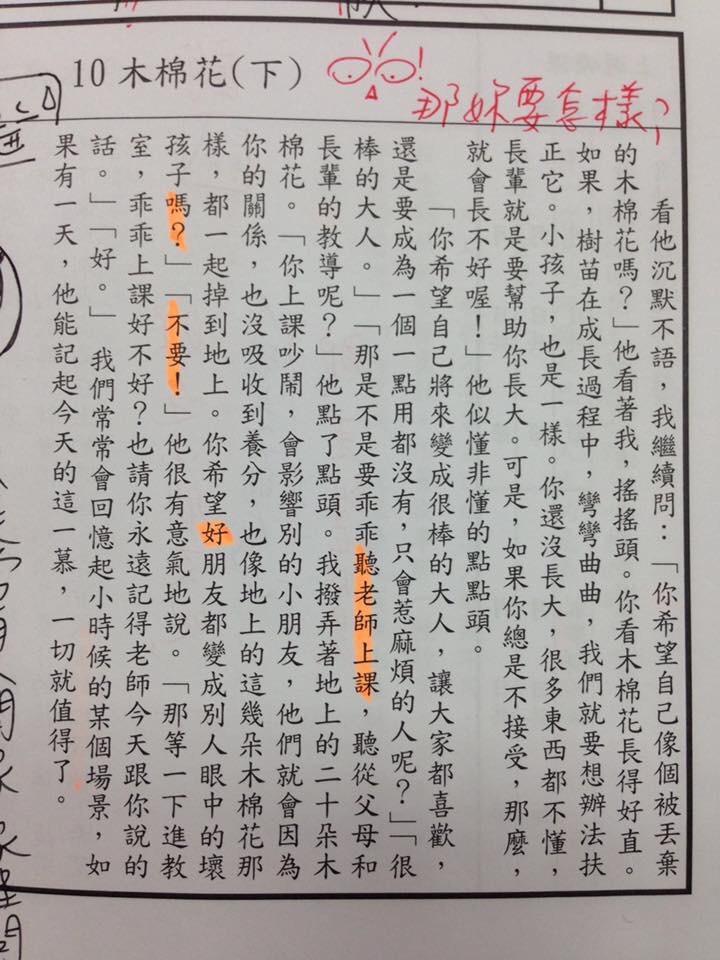 10 木棉花(下)
那妳要怎樣?
看他沉默不語,我繼續問:「你希望自己像個被丟棄
的木棉花嗎?」他看著我,搖搖頭。你看木棉花長得好直。
如果,樹苗在成長過程中,彎彎曲曲,我們就要想辦法扶
正它。小孩子,也是一樣。你還沒長大,很多東西都不懂,
長輩就是要幫助你長大。可是,如果你總是不接受,那麼,
就會長不好喔!」他似懂非懂的點點頭。
「你希望自己將來變成很棒的大人,讓大家都喜歡,
還是要成為一個一點用都沒有,只會惹麻煩的人呢?」「很
棒的大人。」「那是不是要乖乖聽老師上課,聽從父母和
長輩的教導呢?」他點了點頭。我撥弄著地上的二十朵木
棉花。「你上課吵鬧,會影響別的小朋友,他們就會因為
你的關係,也沒吸收到養分,也像地上的這幾朵木棉花那
樣,都一起掉到地上。你希望好朋友都變成別人眼中的壞
孩子嗎?」「不要!」他很有意氣地說。「那等一下進教
室,乖乖上課好不好?也請你永遠記得老師今天跟你說的
話。」「好。」 我們常常會回憶起小時候的某個場景,如
果有一天,他能記起今天的這一慕,一切就值得了。